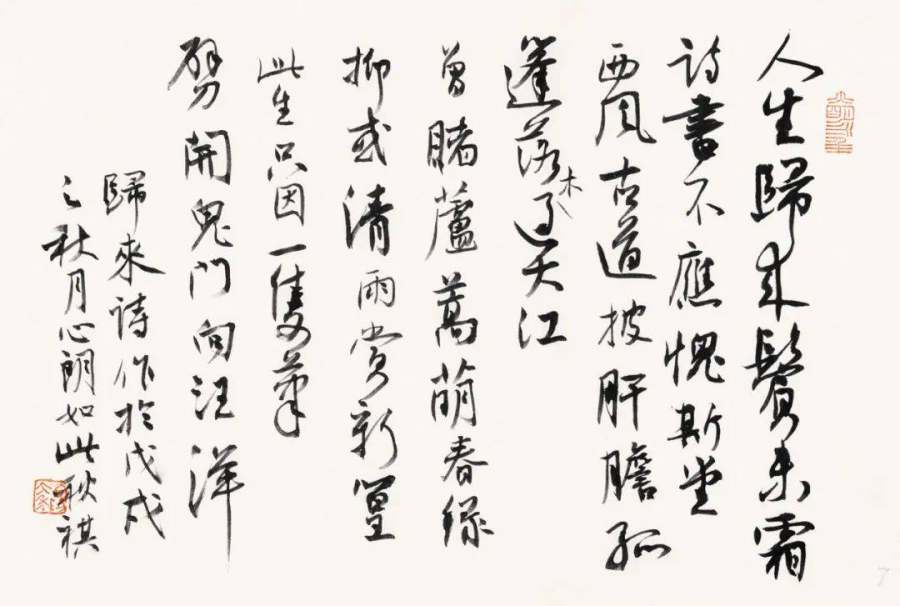 人生歸來鬢未霜
詩書不應愧斯堂
西風古道披肝膽孤
蓬落木天江
曾睹蘆蒿萌春綠
抑或清雨賞新篁
此生只因一隻筆
劈開鬼門向汪洋
歸來詩作於戊戌
之秋月心朗如此耿祺